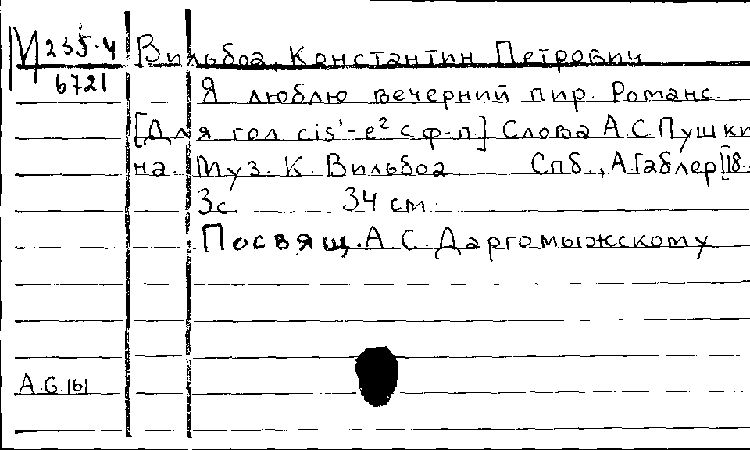 М 235-4 Вильбоа, Константин Петрович
6721
Я люблю вечерний пир. Романс.
[Для гол cis'-e² с ф-п] Слова А.С Пушки
на. Муз. К. Вильбоа Спб., А.Габлер [18.
3с. 34 см.
Посвящ. А С. Даргомыжскому
A.G 161